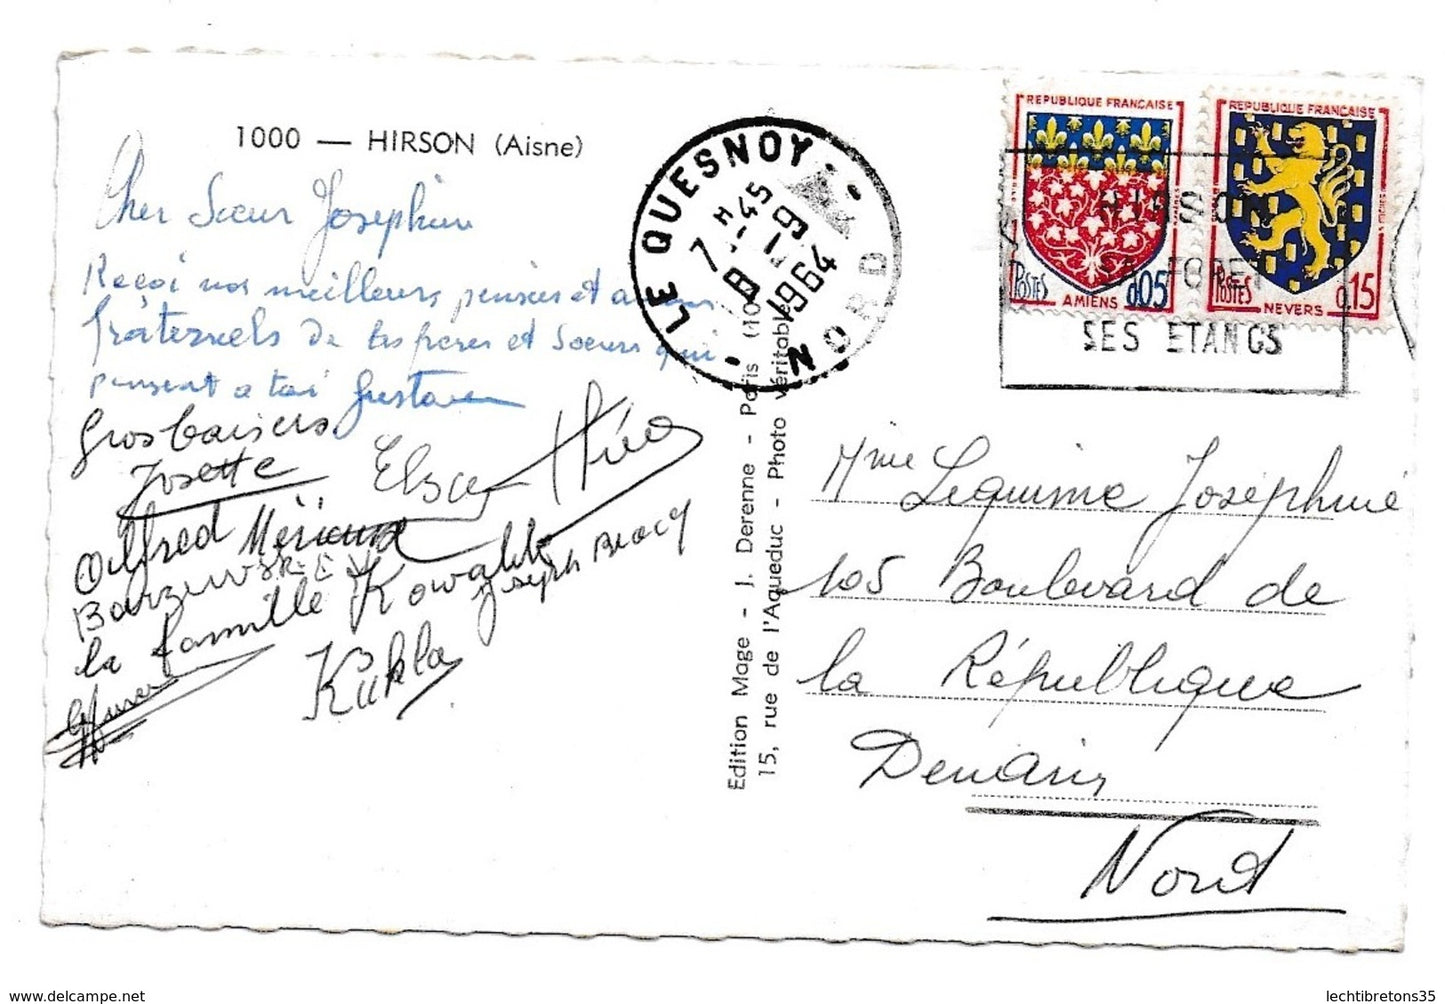 1000 — HIRSON (Aisne)
Cher Sœur Josephine
Reçoi nos meilleurs pensées et
fraternels de tes frères et Sœurs qui
pensent a toi Gustave
Gros baisers
Josette Elsa
Alfred
la famille
Joseph
Kukla
LE QUESNOY
NORD
7 H 45
9 -
1964
REPUBLIQUE FRANÇAISE
POSTES
AMIENS
0,05
REPUBLIQUE FRANÇAISE
POSTES
NEVERS
0,15
HIRSON
SA FORET
SES ETANGS
Edition Mage - J. Derenne - Paris
15, rue de l'Aqueduc - Photo véritable
Mme Lequime Joséphine
105 Boulevard de
la République
Denain
Nord
lechtibretons35